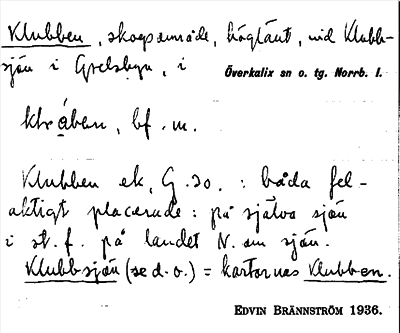 Klubben, skogsområde, högtänt, vid Klubb-
sjön i Grelsbyn, i Överkalix sn o. tg. Norrb. l.
bf. m.
Klubben ek, G. so. : båda fel-
aktigt placerade: på själva sjön
i st. f. på landet N. om sjön.
Klubbsjön (se d. o.) = kartornas Klubben.
EDVIN BRÄNNSTRÖM 1936.